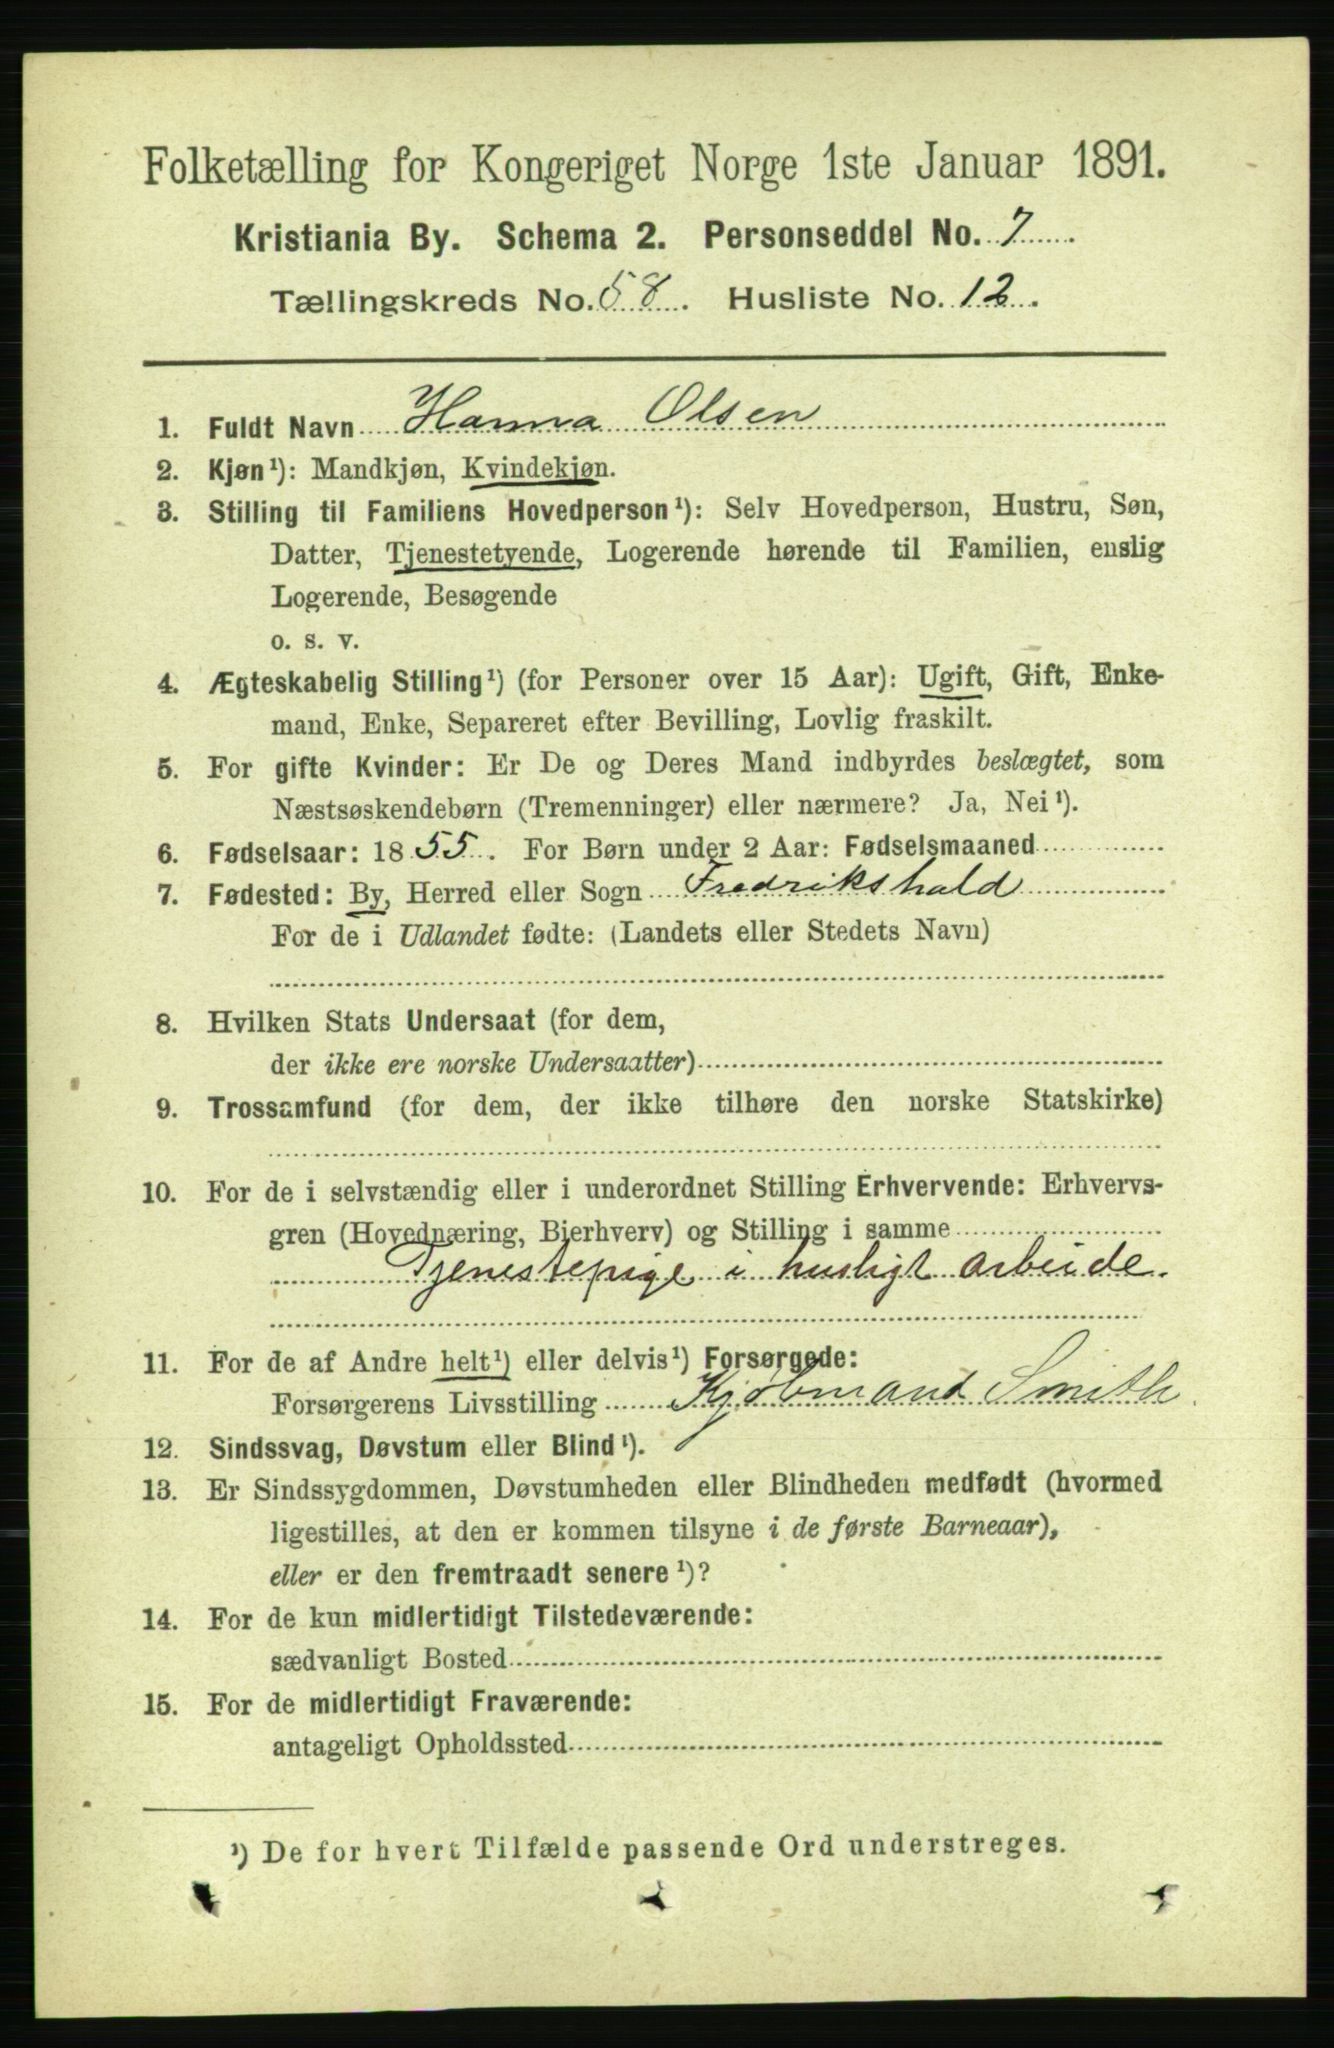 Folketælling for Kongeriget Norge 1ste Januar 1891.
Kristiania By. Schema 2. Personseddel No. 7
Tællingskreds No. 58. Husliste No. 12.
1. Fuldt Navn Hanna Olsen
2. Kjøn¹): Mandkjøn, Kvindekjøn.
3. Stilling til Familiens Hovedperson¹): Selv Hovedperson, Hustru, Søn,
Datter, Tjenestetyende, Logerende hørende til Familien, enslig
Logerende, Besøgende
o. s. v.
4. Ægteskabelig Stilling¹) (for Personer over 15 Aar): Ugift, Gift, Enke-
mand, Enke, Separeret efter Bevilling, Lovlig fraskilt.
5. For gifte Kvinder: Er De og Deres Mand indbyrdes beslægtet, som
Næstsøskendebørn (Tremenninger) eller nærmere? Ja, Nei¹).
6. Fødselsaar: 1855. For Børn under 2 Aar: Fødselsmaaned
7. Fødested: By, Herred eller Sogn Fredrikshald
For de i Udlandet fødte: (Landets eller Stedets Navn)
8. Hvilken Stats Undersaat (for dem,
der ikke ere norske Undersaatter)
9. Trossamfund (for dem, der ikke tilhøre den norske Statskirke)
10. For de i selvstændig eller i underordnet Stilling Erhvervende: Erhvervs-
gren (Hovednæring, Bierhverv) og Stilling i samme
Tjenestepige i husligt arbeide.
11. For de af Andre helt¹) eller delvis¹) Forsørgede:
Forsørgerens Livsstilling Kjøbmand Smith.
12. Sindssvag, Døvstum eller Blind¹).
13. Er Sindssygdommen, Døvstumheden eller Blindheden medfødt (hvormed
ligestilles, at den er kommen tilsyne i de første Barneaar),
eller er den fremtraadt senere¹)?
14. For de kun midlertidigt Tilstedeværende:
sædvanligt Bosted
15. For de midlertidigt Fraværende:
antageligt Opholdssted
¹) De for hvert Tilfælde passende Ord understreges.